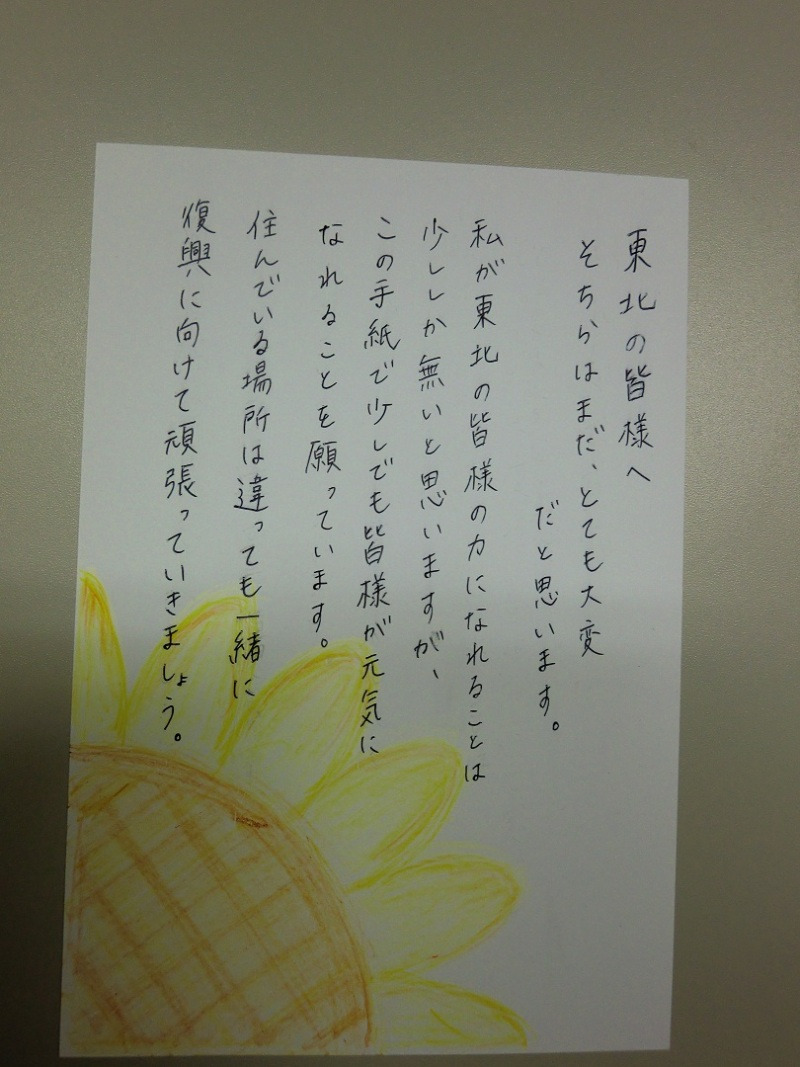 東北の皆様へ
そちらはまだ、とても大変
だと思います。
私が東北の皆様の力になれることは
少ししか無いと思いますが、
この手紙で少しでも皆様が元気に
なれることを願っています。
住んでいる場所は違っても一緒に
復興に向けて頑張っていきましょう。